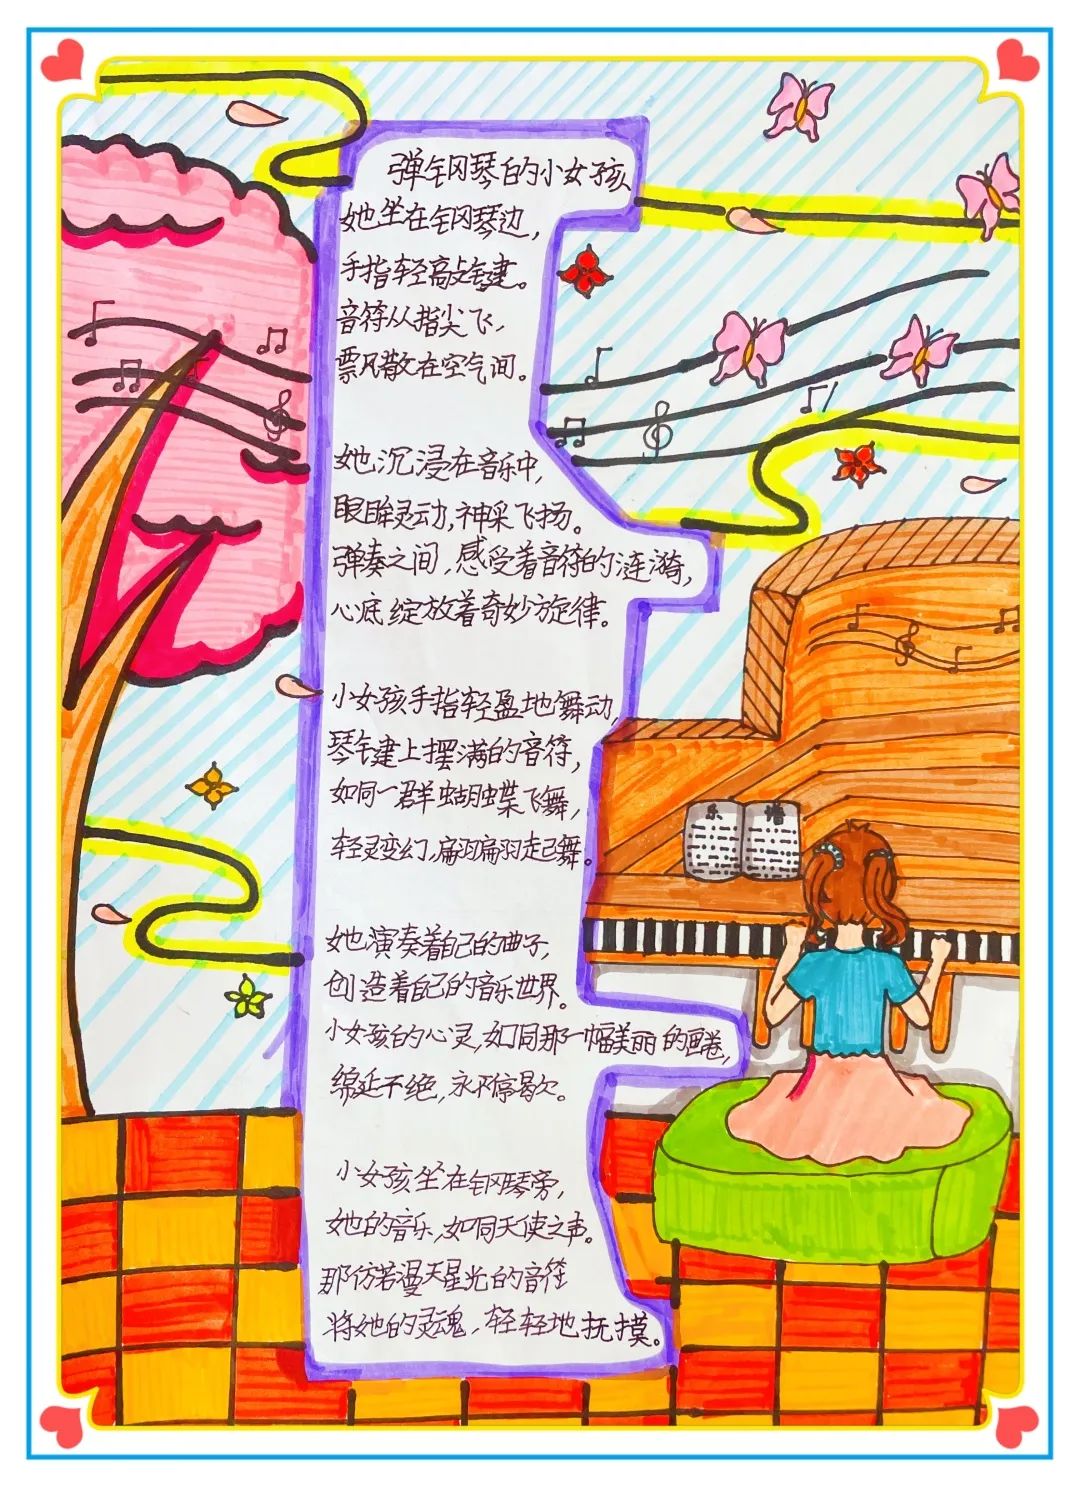 弹钢琴的小女孩
她坐在钢琴边,
手指轻敲键。
音符从指尖飞,
飘散在空气间。
她沉浸在音乐中,
眼眸灵动,神采飞扬。
弹奏之间,感受着音符的涟漪,
心底绽放着奇妙旋律。
小女孩手指轻盈地舞动,
琴键上摆满的音符,
如同一群蝴蝶飞舞,
轻灵变幻,翩翩起舞。
她演奏着自己的曲子,
创造着自己的音乐世界。
小女孩的心灵,如同那一幅美丽的画卷,
绵延不绝,永不停歇。
小女孩坐在钢琴旁,
她的音乐,如同天使之声。
那仿若漫天星光的音符
将她的灵魂,轻轻地抚摸。
乐 谱